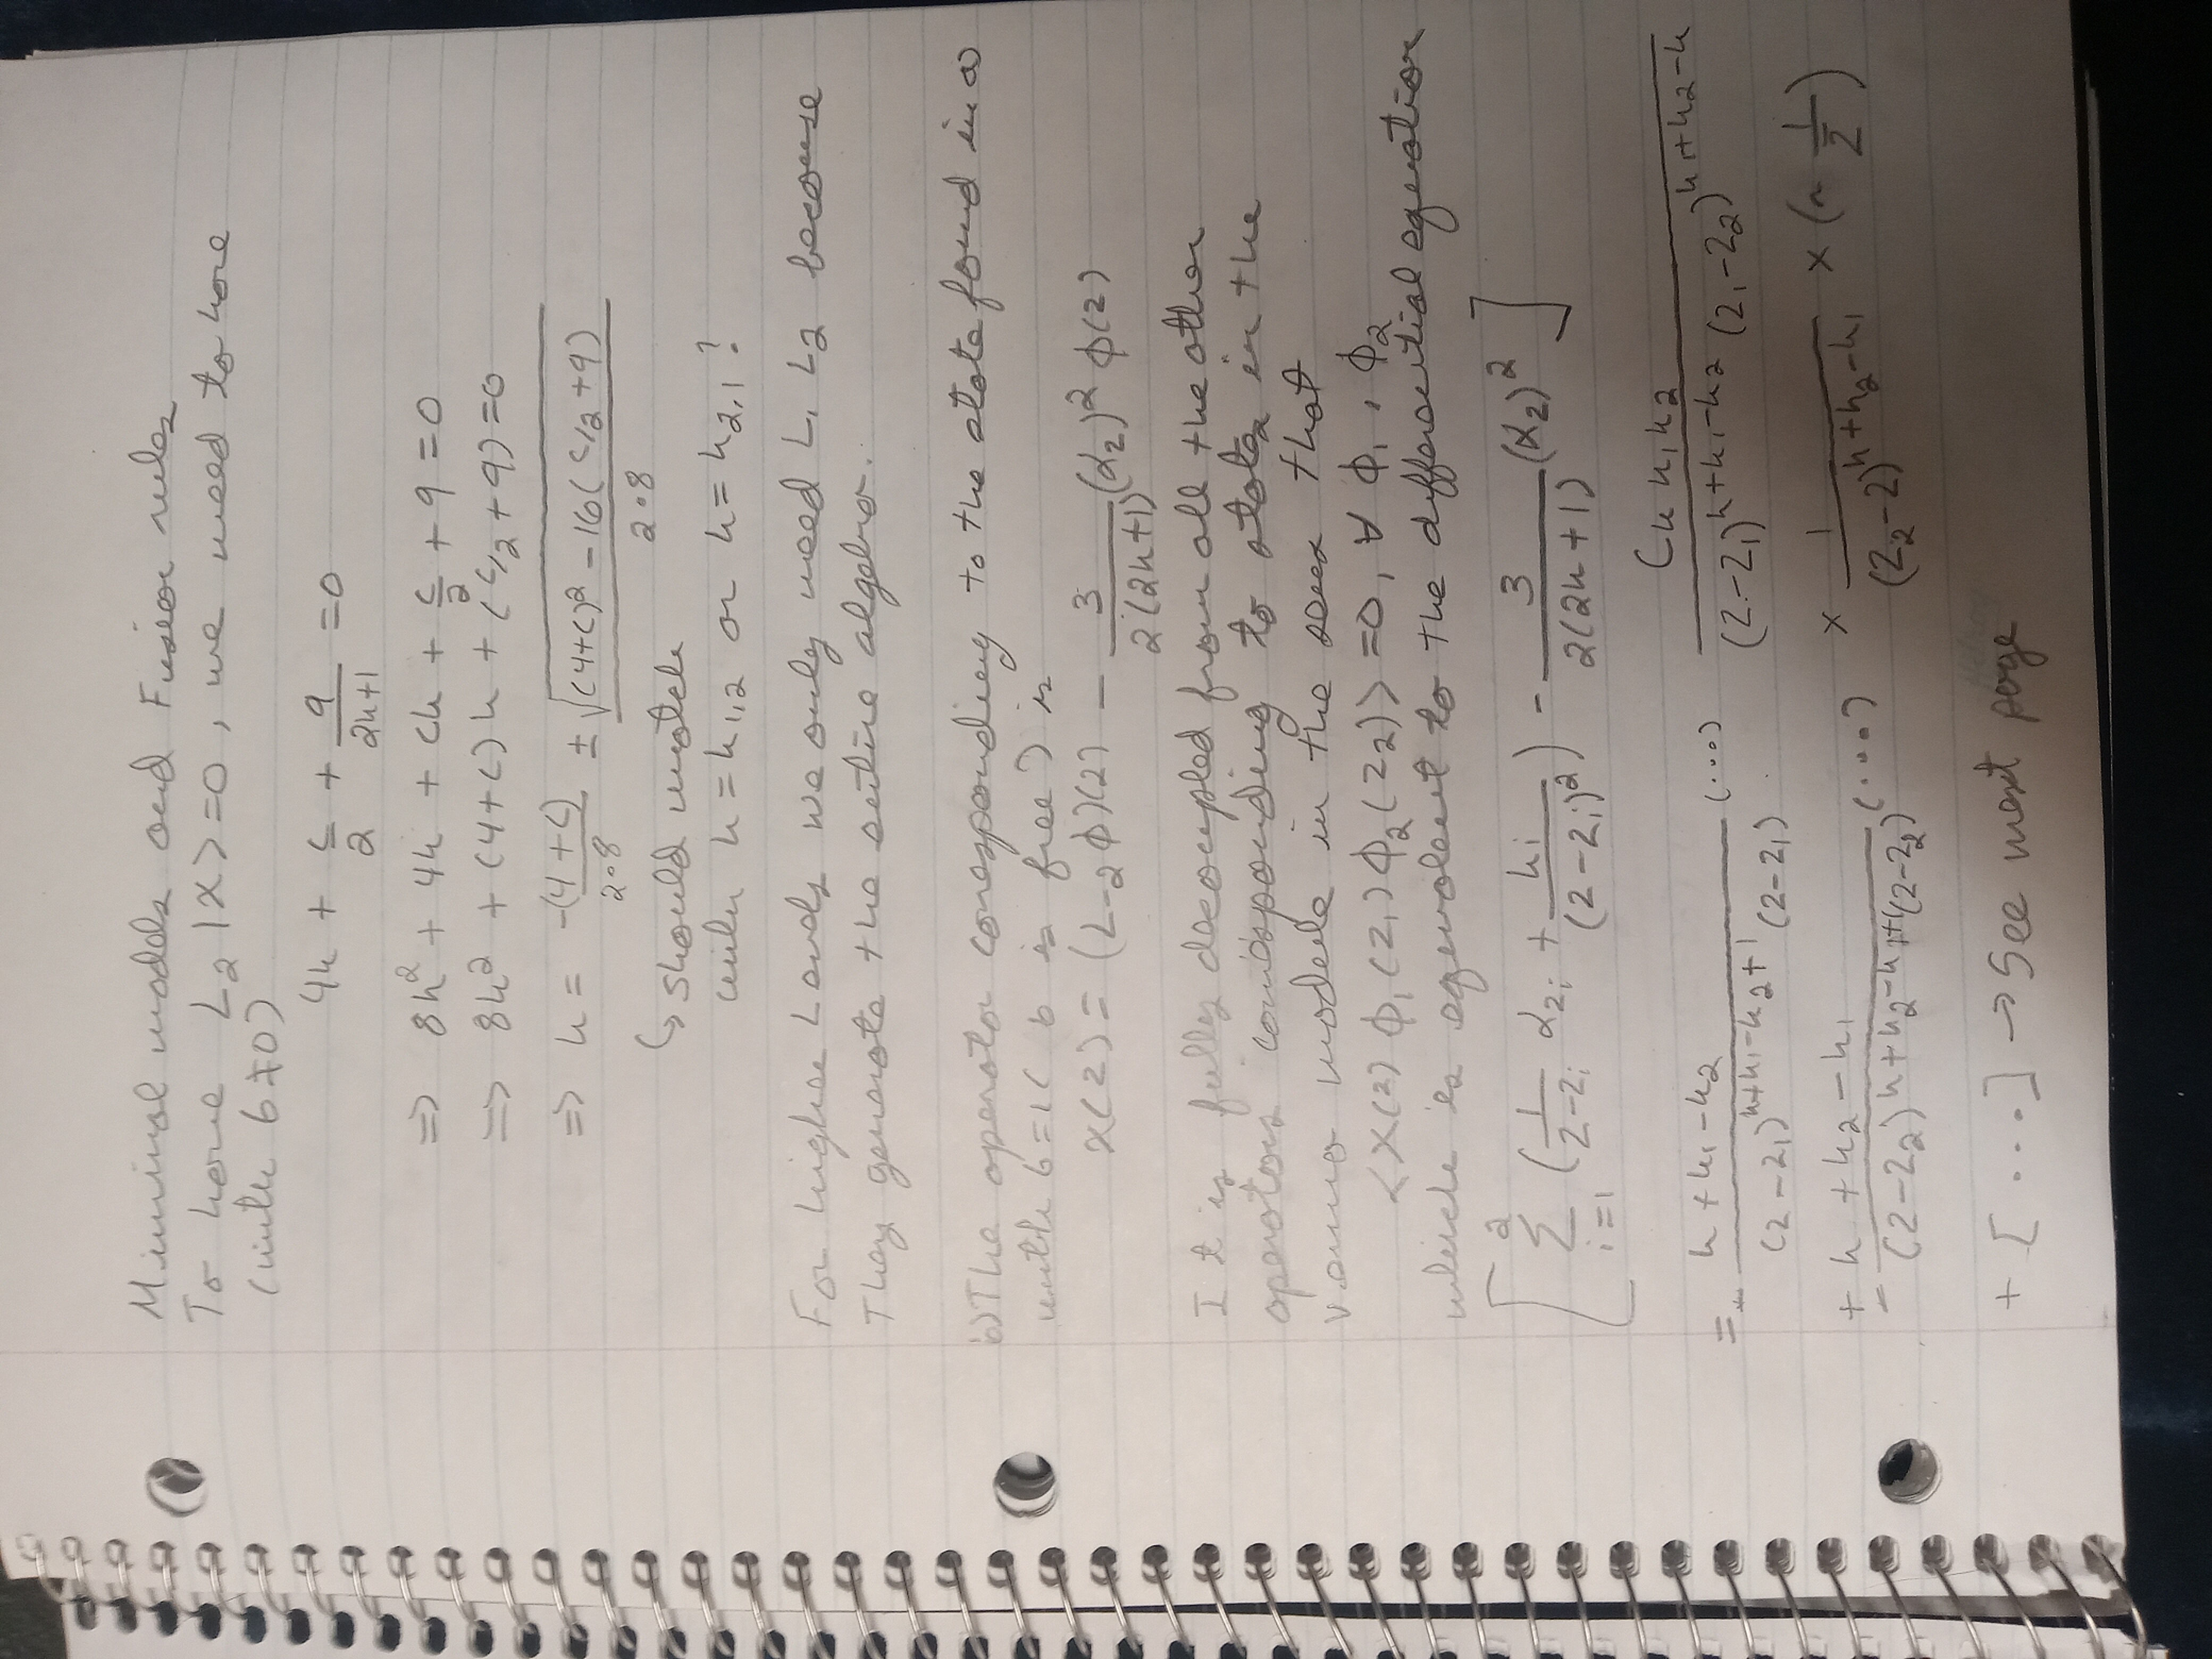 Minimal models and Fusion rules
To have L₂|X>=0, we need to have
(with b≠0)
4h + c/2 + 9/(2h+1) = 0
=> 8h² + 4h + ch + c/2 + 9 = 0
=> 8h² + (4+c)h + (c/2+9)=0
=> h = -(4+c)/2·8 ± √((4+c)²-16(c/2+9))/2·8
↳ should match
with h=h₁,₂ or h=h₂,₁?
For higher L and we only need L₁ L₂ because
They generate the entire algebra.
b) The operator corresponding to the state found in a
with b=1 (b is free) is
X(z) = (L-2 φ)(z) - 3/2(2h+1) (∂z)² φ(z)
It is fully decoupled from all the other
operators corresponding to state in the
Verma module in the sense that
<X(z) φ₁(z₁) φ₂(z₂)>=0, ∀ φ₁, φ₂
which is equivalent to the differential equation
[ Σ²ᵢ₌₁ (1/(z-zᵢ) ∂zᵢ + hᵢ/(z-zᵢ)²) - 3/2(2h+1) (∂z)² ]
C h h₁ h₂/(z-z₁)^h+h₁-h₂ (z₁-z₂)^h₁+h₂-h
= h+h₁-h₂/(z-z₁)^h+h₁-h₂+1 (z-z₁) (...)
+ h+h₂-h₁/(z-z₂)^h+h₂-h₁+1 (z-z₂) (...) × 1/(z₂-z)^h+h₂-h₁
+ [...] → See next page